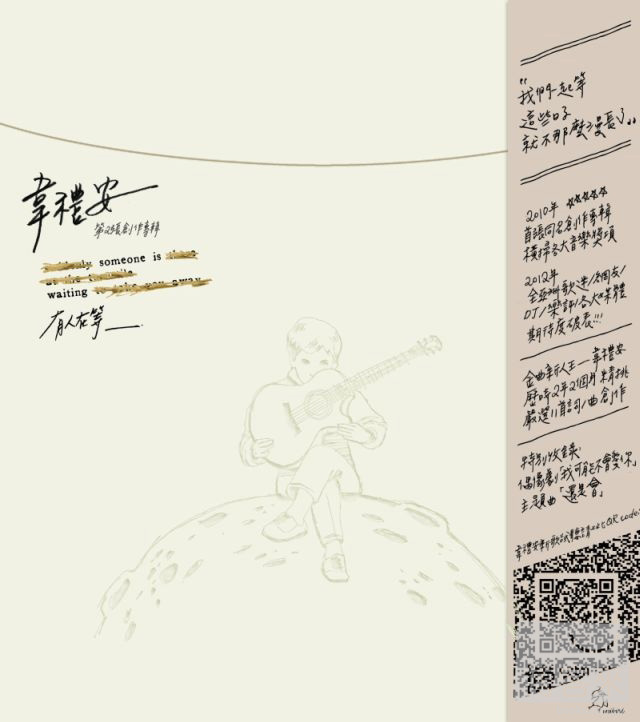 韋禮安
第2張創作專輯
someone is
waiting
有人在等__.
“我們一起等
這些日子
就不那麼漫長了”
2010年 ☆☆☆☆☆
首張同名創作專輯
橫掃各大音樂獎項
2012年
全亞洲歌迷/網友/
DJ/樂評/各大媒體
期待度破表!!!
金曲新人王—韋禮安
歷時2年2個月 精挑
嚴選11首詞/曲 創作
特別收錄
偶像劇「我可能不會愛你」
主題曲「還是會」
韋禮安新歌試聽請上QR code: